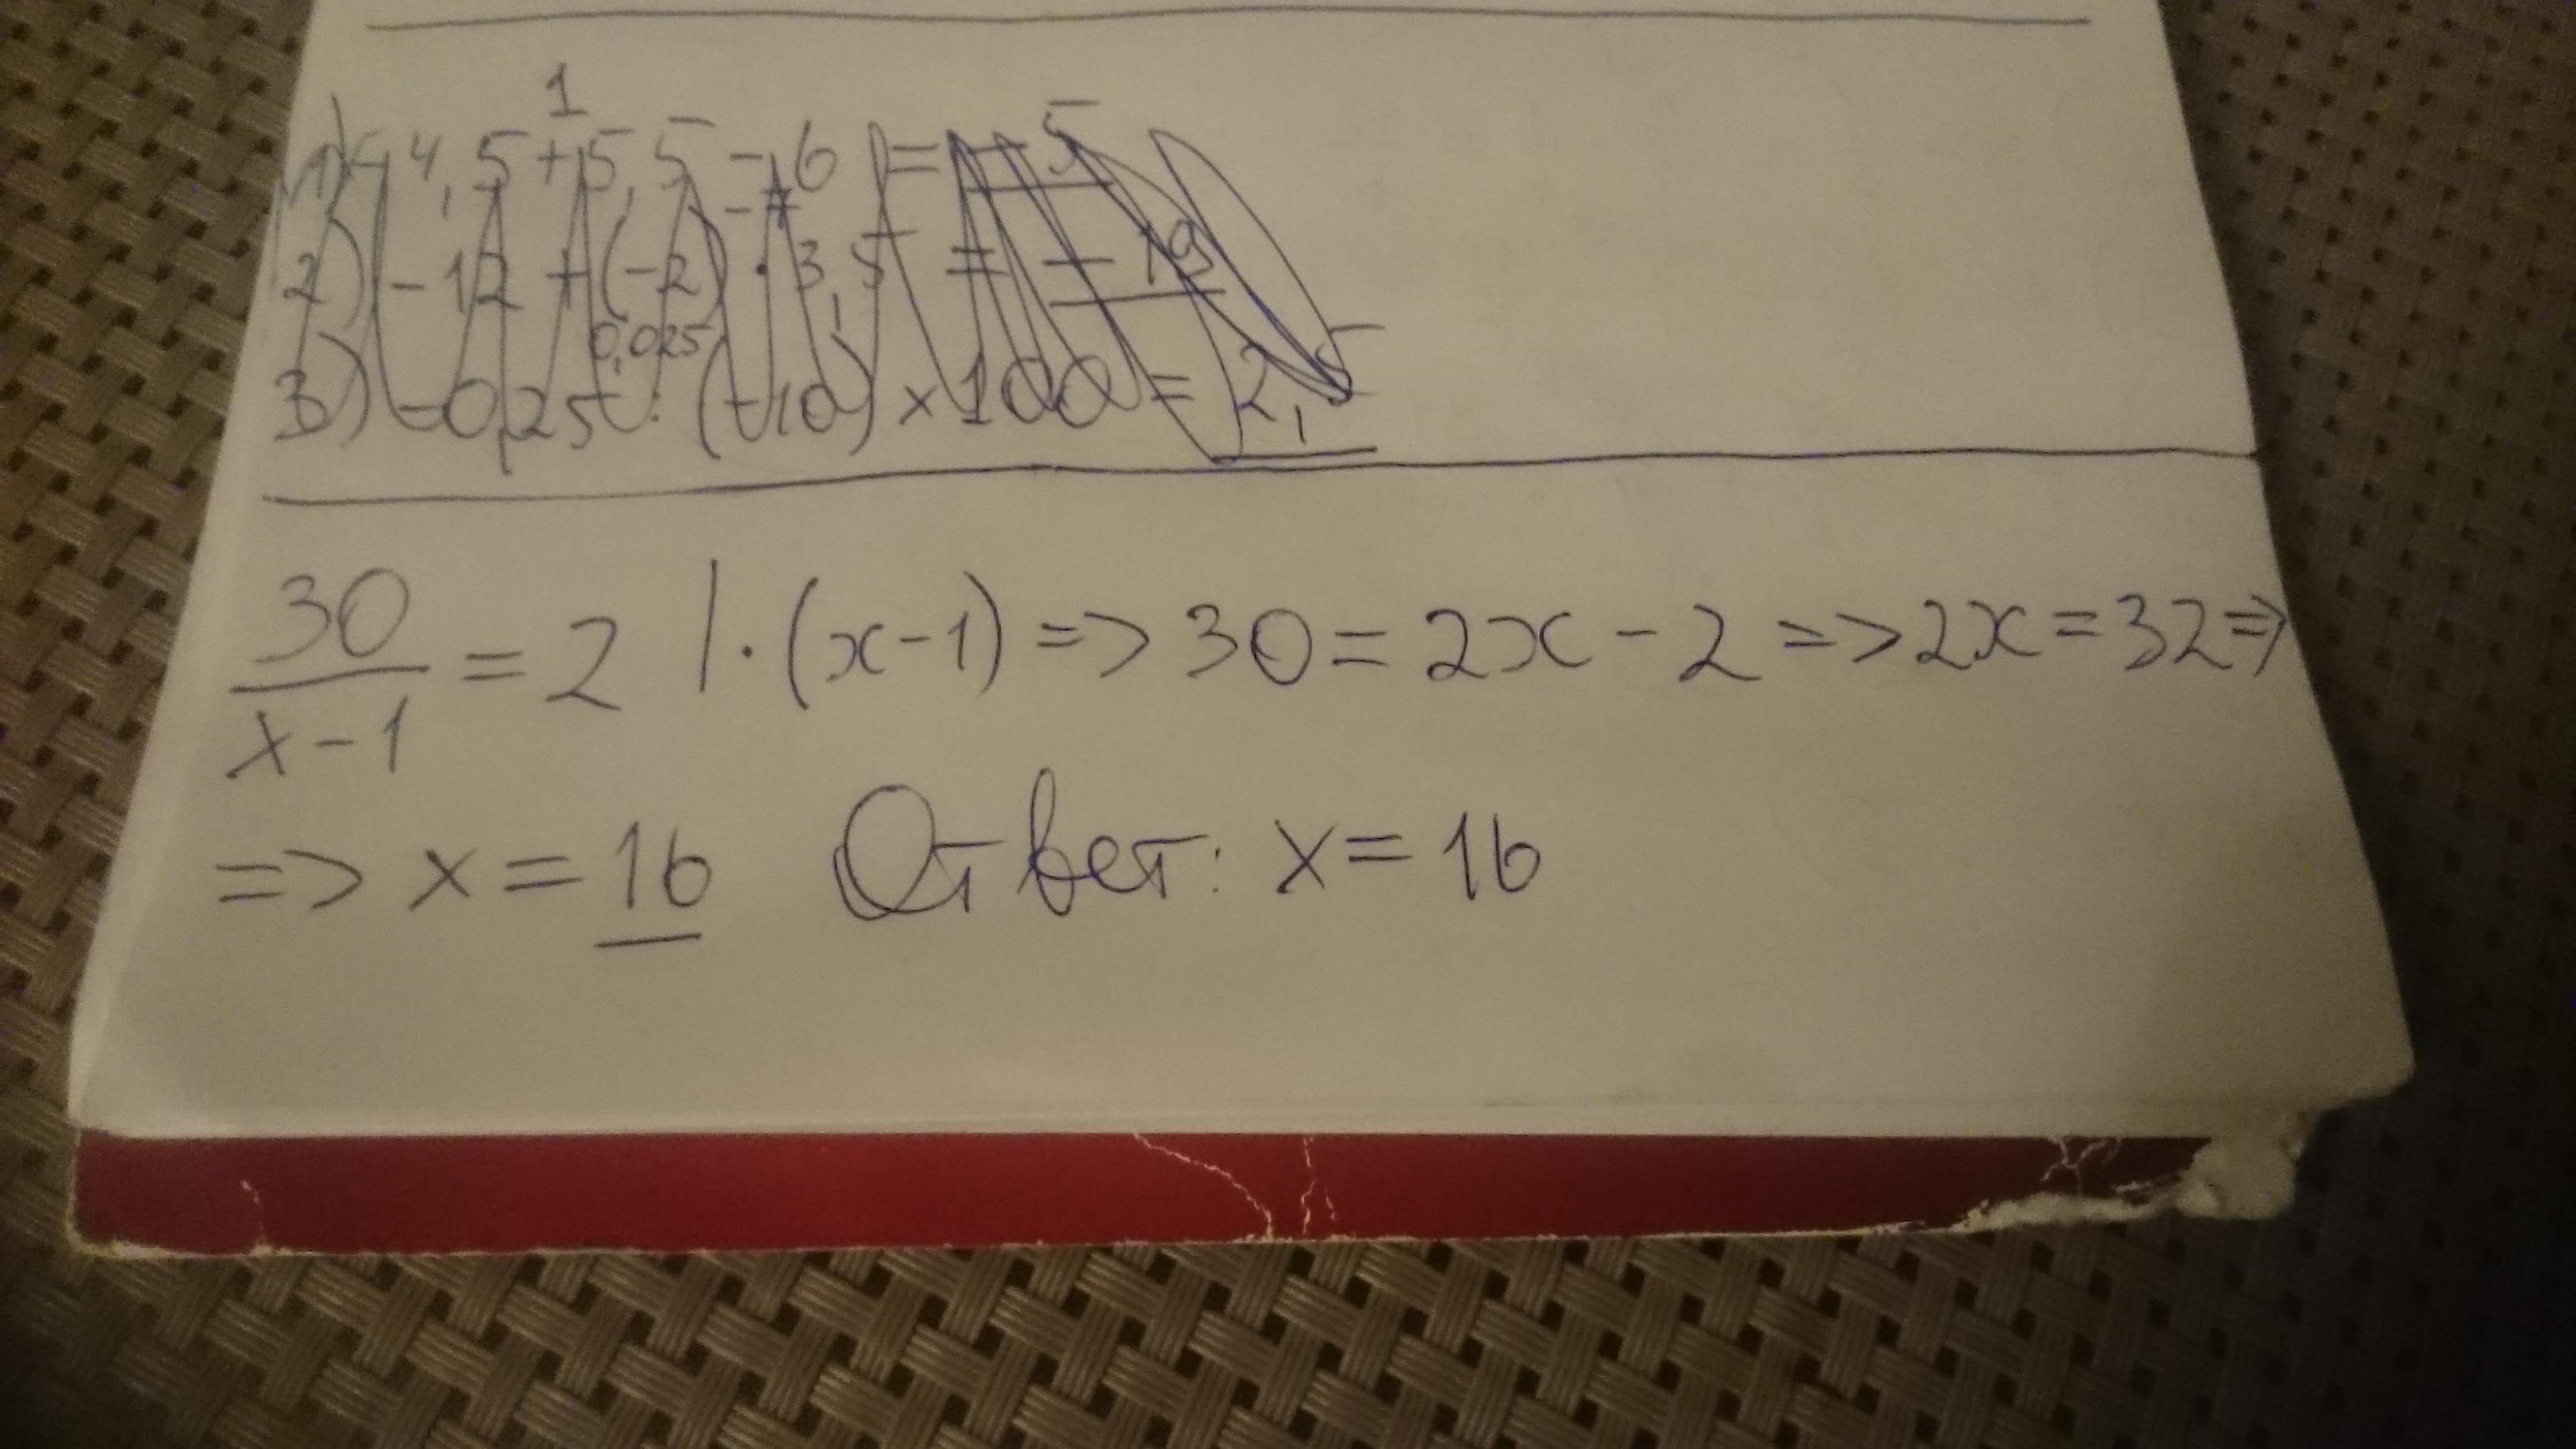 1
1) -4,5 + 5,5 - 6 = -5
-7
2) -12 + (-2) · 3,5 = -19
0,025
3) -0,25 : (-10) × 100 = 2,5
30/(x-1) = 2 | · (x-1) => 30 = 2x - 2 => 2x = 32 =>
=> x = 16 Ответ: x = 16